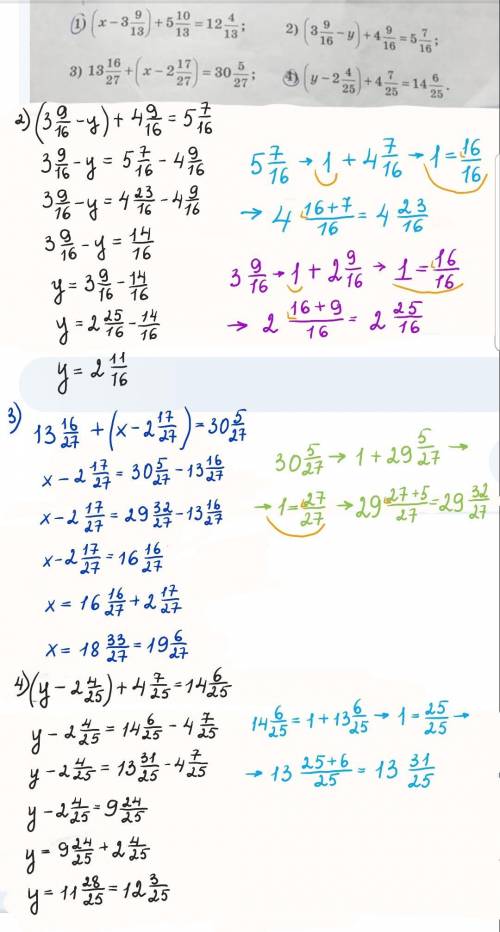 1) (x − 3 9/13) + 5 10/13 = 12 4/13;    2) (3 9/16 − y) + 4 9/16 = 5 7/16;
3) 13 16/27 + (x − 2 17/27) = 30 5/27;    4) (y − 2 4/25) + 4 7/25 = 14 6/25.
2) (3 9/16 − y) + 4 9/16 = 5 7/16
3 9/16 − y = 5 7/16 − 4 9/16
3 9/16 − y = 4 23/16 − 4 9/16
3 9/16 − y = 14/16
y = 3 9/16 − 14/16
y = 2 25/16 − 14/16
y = 2 11/16
5 7/16 → 1 + 4 7/16 → 1 = 16/16
→ 4 16+7/16 = 4 23/16
3 9/16 → 1 + 2 9/16 → 1 = 16/16
→ 2 16+9/16 = 2 25/16
3) 13 16/27 + (x − 2 17/27) = 30 5/27
x − 2 17/27 = 30 5/27 − 13 16/27
x − 2 17/27 = 29 32/27 − 13 16/27
x − 2 17/27 = 16 16/27
x = 16 16/27 + 2 17/27
x = 18 33/27 = 19 6/27
30 5/27 → 1 + 29 5/27 →
→ 1 = 27/27 → 29 27+5/27 = 29 32/27
4) (y − 2 4/25) + 4 7/25 = 14 6/25
y − 2 4/25 = 14 6/25 − 4 7/25
y − 2 4/25 = 13 31/25 − 4 7/25
y − 2 4/25 = 9 24/25
y = 9 24/25 + 2 4/25
y = 11 28/25 = 12 3/25
14 6/25 = 1 + 13 6/25 → 1 = 25/25 →
→ 13 25+6/25 = 13 31/25